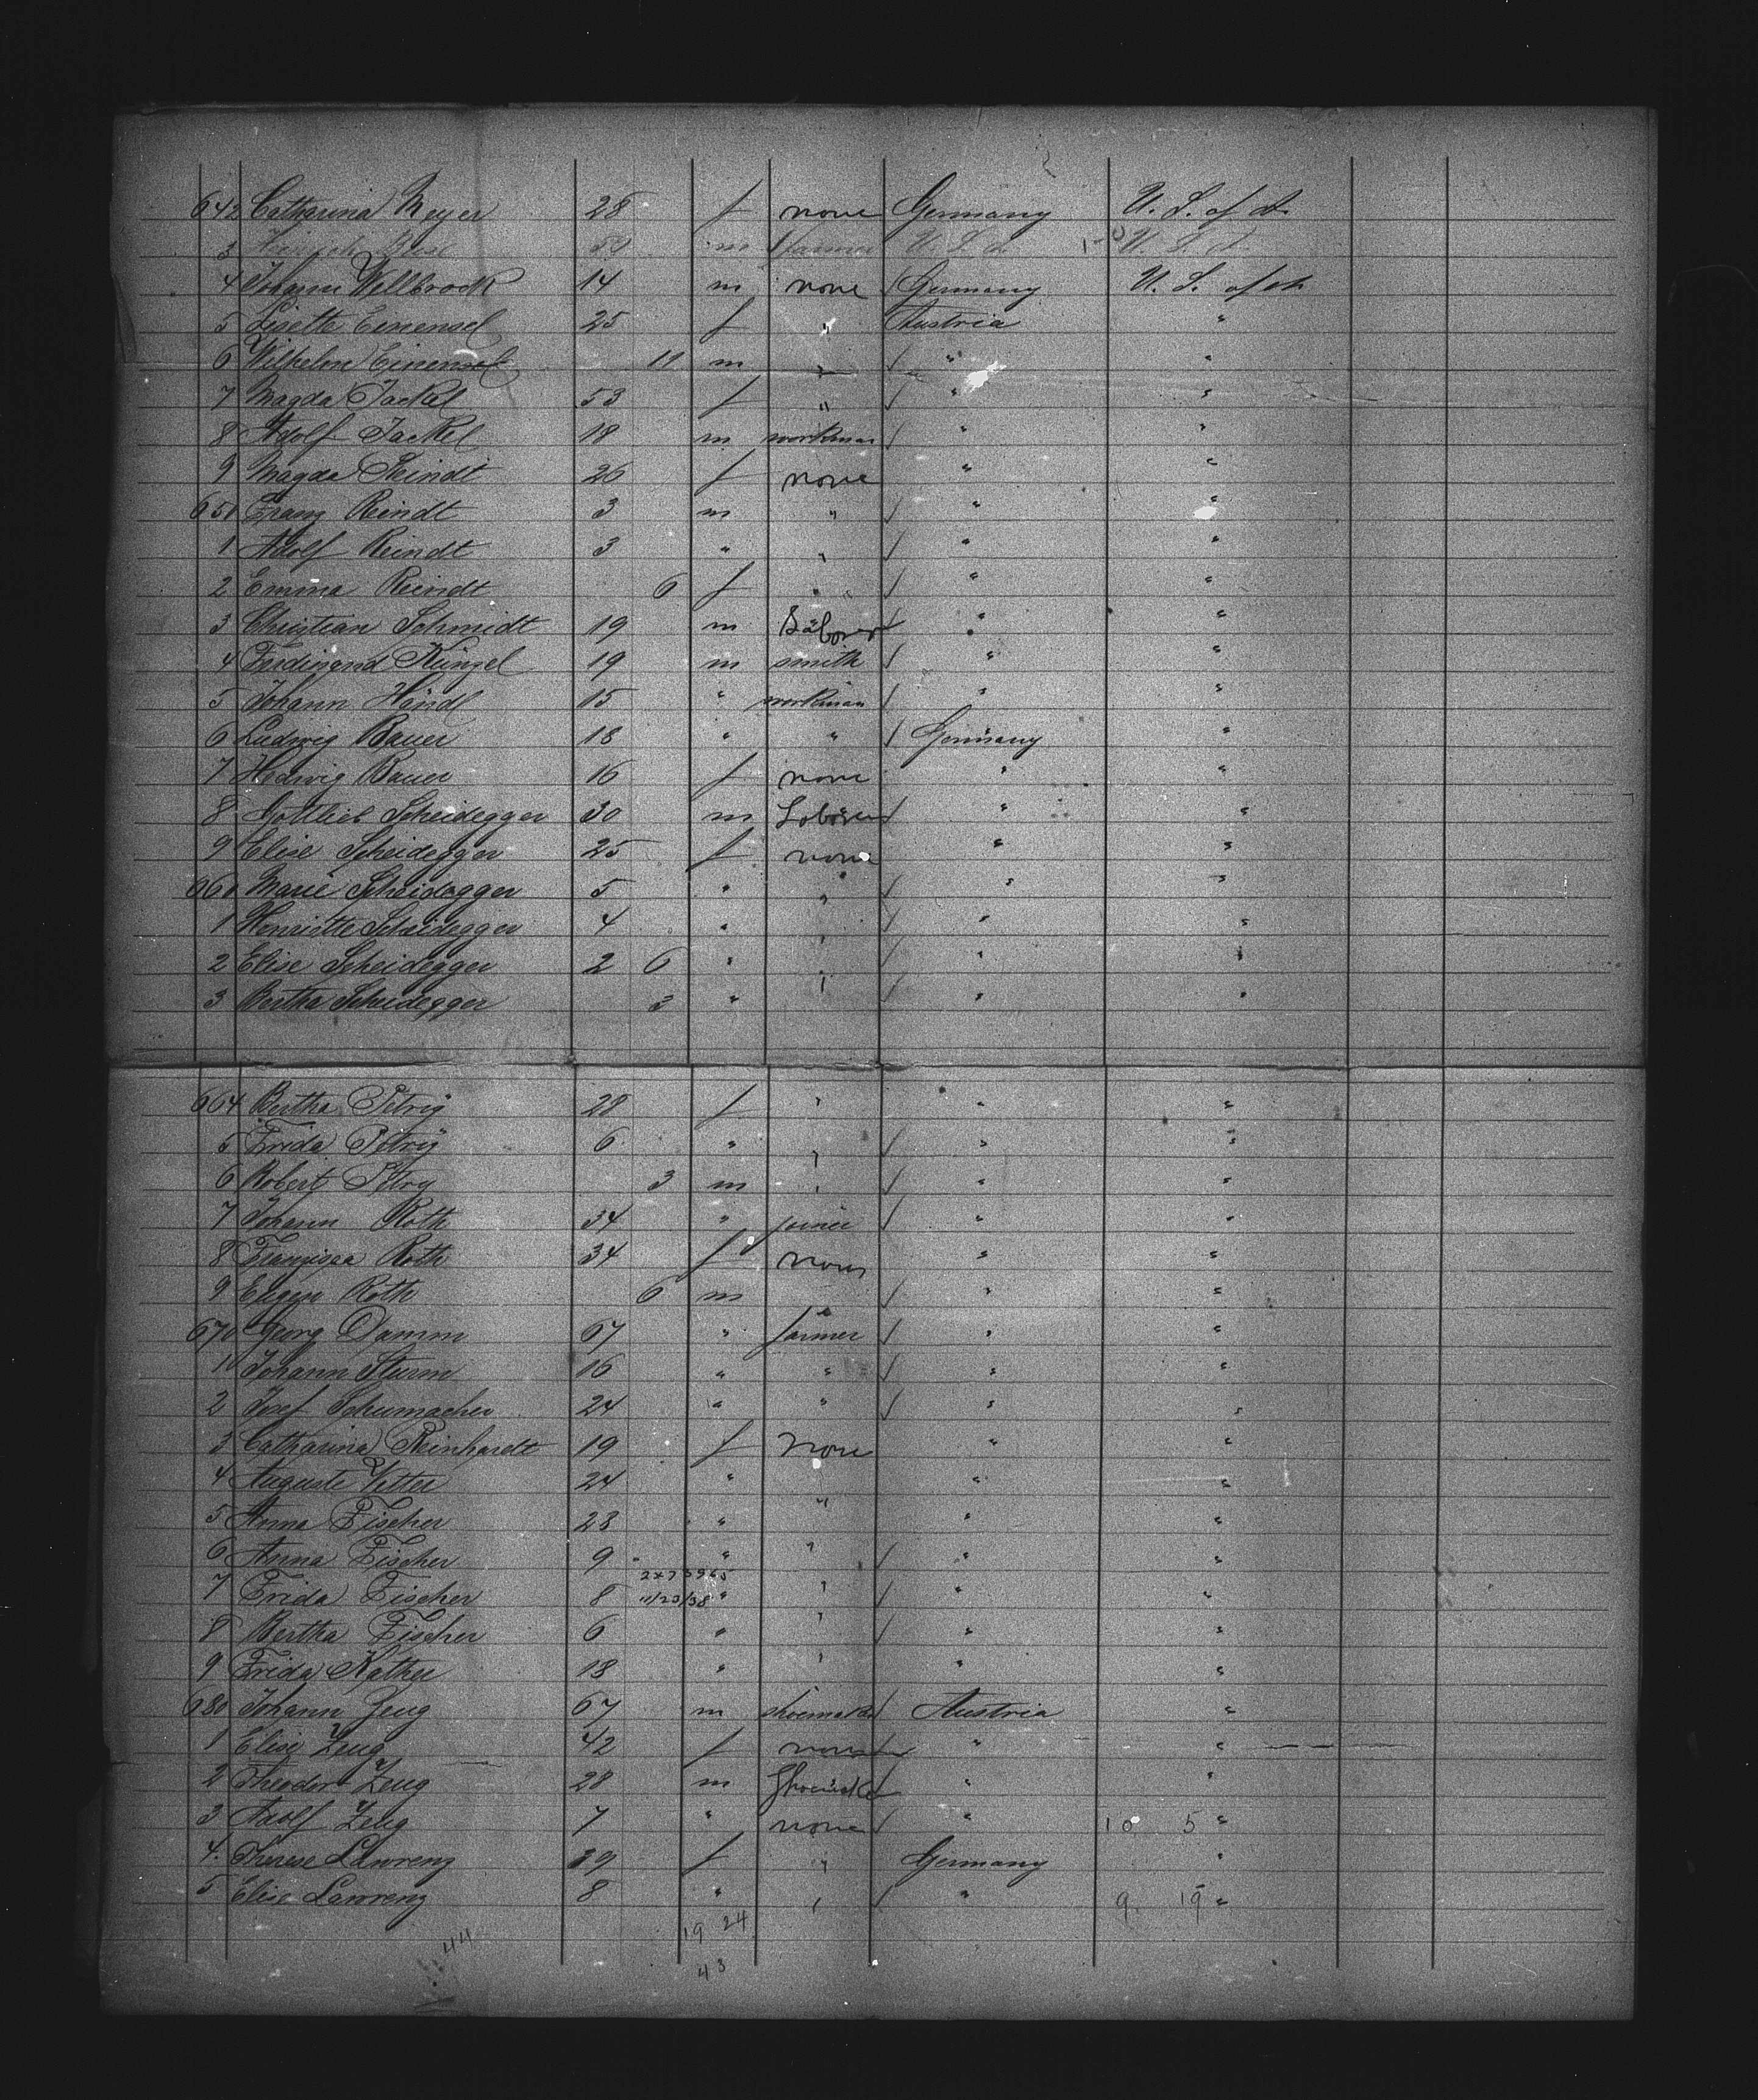 642 Catharina Meyer 28 f none Germany U. S. of A.
3 m U. S. A. U. S. A.
4 Johann Wellbrock 14 m none Germany U. S. of A.
5 Lisette Einensel 25 f " Austria "
6 Wilhelm Einensel 11 m " " "
7 Magda Jackel 53 f " " "
8 Adolf Jackel 18 m workman " "
9 Magda Reindt 26 f none " "
650 Franz Reindt 3 m " " "
1 Adolf Reindt 3 " " " "
2 Emma Reindt 6 f " " "
3 Christian Schmidt 19 m Laborer " "
4 Ferdinand Küngel 19 m smith " "
5 Johann Händl 15 " workman " "
6 Ludwig Bauer 18 " " Germany "
7 Hedwig Bauer 16 f none " "
8 Gottlieb Scheidegger 30 m Laborer " "
9 Elise Scheidegger 25 f none " "
660 Marie Scheidegger 5 " " " "
1 Henriette Scheidegger 4 " " " "
2 Elise Scheidegger 2 6 " " " "
3 Bertha Scheidegger 3 " " "
664 Bertha Petry 28 f " " "
5 Frida Petry 6 " " " "
6 Robert Petry 3 m " " "
7 Johann Roth 34 " joiner " "
8 Franzisca Roth 34 f none " "
9 Eugen Roth 6 m " "
670 Georg Damm 67 " farmer " "
1 Johann Sturm 16 " " " "
2 Josef Schumacher 24 " " " "
3 Catharina Reinhardt 19 f none " "
4 Auguste Vetter 24 " " " "
5 Anna Fischer 28 " " "
6 Anna Fischer 9 " " " "
2x73965
7 Frida Fischer 8 11/23/38 " " " "
8 Bertha Fischer 6 " " " "
9 Frida Kather 18 " " " "
680 Johann Zeug 67 m shoemaker Austria "
1 Elise Zeug 42 f none " "
2 Theodor Zeug 28 m " "
3 Adolf Zeug 7 " none " 10 5 "
4 Therese Lawrenz 39 f " Germany "
5 Elise Lawrenz 8 " " " 9 19 "
19 24
44
43